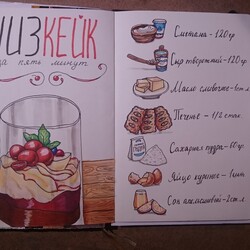 ЧИЗКЕЙК
за пять минут
Сметана - 120гр
Сыр творожный - 120гр
Масло сливочное - 1ст.л
Печенье - 1/2 стак.
Сахарная пудра - 60гр.
Яйцо куриное - 1шт.
Сок апельсиновый - 2ст.л